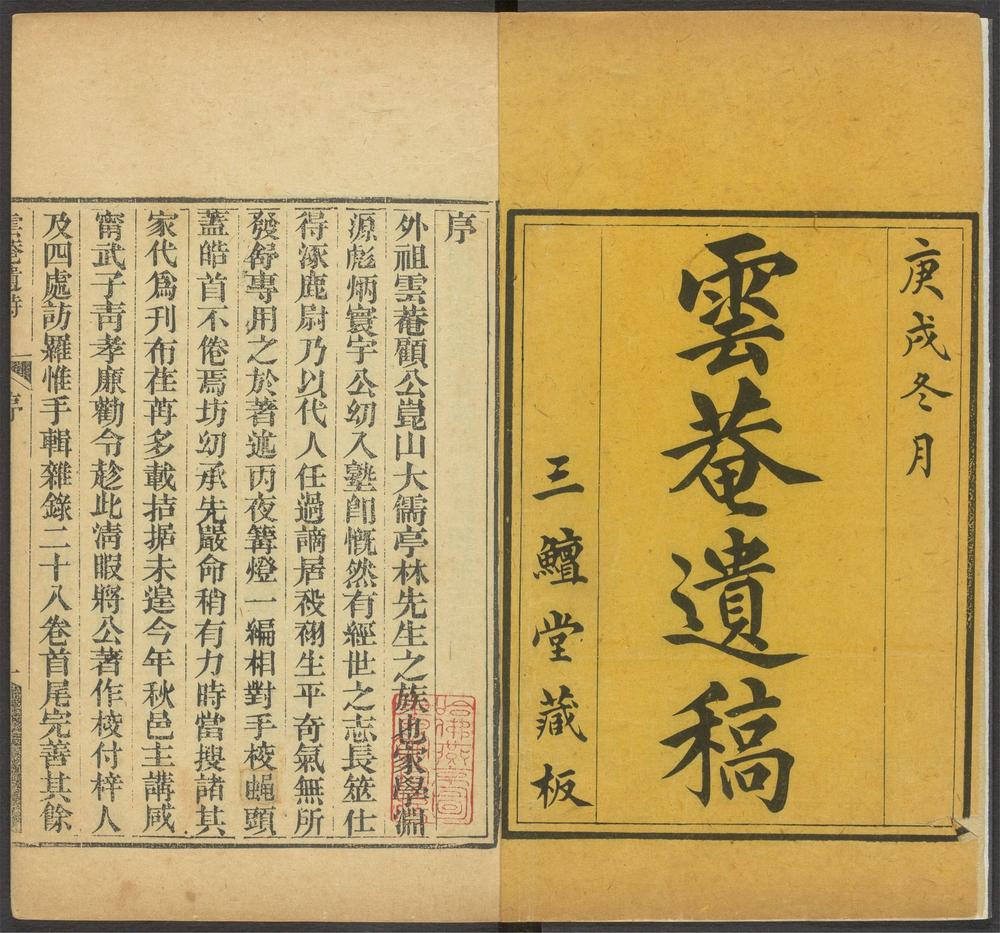 庚戌冬月
雲菴遺稿
三鱣堂藏板
序
外祖雲菴顧公崑山大儒亭林先生之族也家學淵
源彪炳寰宇公幼入塾卽慨然有經世之志長筮仕
得涿鹿尉乃以代人任過謫居祋祤生平奇氣無所
發舒專用之於著述丙夜篝燈一編相對手校蝇頭
蓋皓首不倦焉坊幼承先嚴命稍有力時當搜諸其
家代爲刊布荏苒多載拮据未遑今年秋邑主講咸
甯武子靑孝廉勸令趁此淸暇將公著作校付梓人
及四處訪羅惟手輯雜錄二十八卷首尾完善其餘
雲菴遺詩
序
一